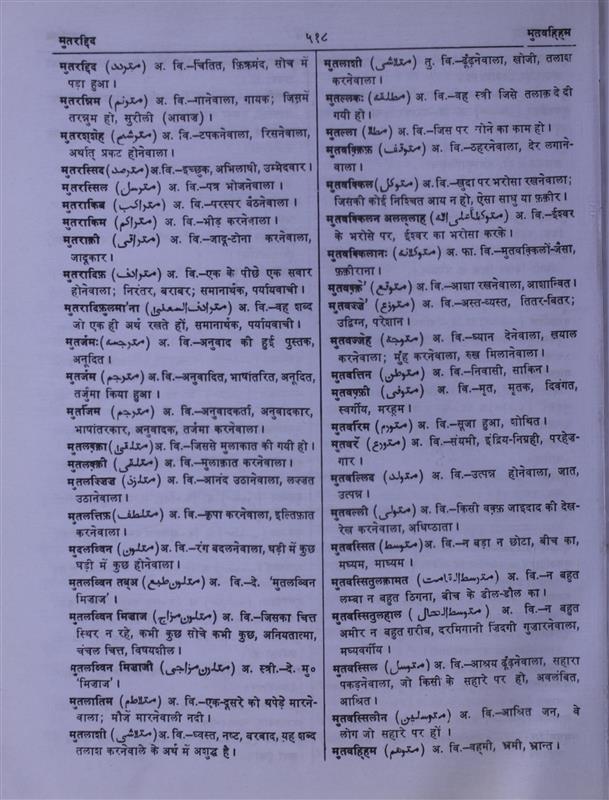 मुतरद्दिद ५१८ मुतवह्हिम
मुतरद्दिद (متردد) अ. वि.–चिंतित, फ़िक्रमंद, सोच में
पड़ा हुआ।
मुतरन्निम (مترنم) अ. वि.–गानेवाला, गायक; जिसमें
तरन्नुम हो, सुरीली (आवाज)।
मुतरश्शेह (مترشح) अ. वि.–टपकनेवाला, रिसनेवाला,
अर्थात् प्रकट होनेवाला।
मुतरस्सिद (مترصد) अ. वि.–इच्छुक, अभिलाषी, उम्मेदवार।
मुतरस्सिल (مترسل) अ. वि.–पत्र भेजनेवाला।
मुतराकिब (متراکب) अ. वि.–परस्पर बैठनेवाला।
मुतराकिम (متراکم) अ. वि.–भीड़ करनेवाला।
मुतराक़ी (متراقی) अ. वि.–जादू-टोना करनेवाला,
जादूकार।
मुतरादिफ़ (مترادف) अ. वि.–एक के पीछे एक सवार
होनेवाला; निरंतर, बराबर; समानार्थक, पर्यायवाची।
मुतरादिफ़ुलमा'ना (مترادف المعنی) अ. वि.–वह शब्द
जो एक ही अर्थ रखते हों, समानार्थक, पर्यायवाची।
मुतर्जमः (مترجمہ) अ. वि.–अनुवाद की हुई पुस्तक,
अनूदित।
मुतर्जम (مترجم) अ. वि.–अनुवादित, भाषांतरित, अनूदित,
तर्जुमा किया हुआ।
मुतर्जिम (مترجم) अ. वि.–अनुवादकर्ता, अनुवादकार,
भाषांतरकार, अनुवादक, तर्जमा करनेवाला।
मुतलक़्क़ा (متلقیٰ) अ. वि.–जिससे मुलाकात की गयी हो।
मुतलक़्क़ी (متلقی) अ. वि.–मुलाक़ात करनेवाला।
मुतलज़्ज़िज़ (متلذذ) अ. वि.–आनंद उठानेवाला, लज्जत
उठानेवाला।
मुतलत्तिफ़ (متلطف) अ. वि.–कृपा करनेवाला, इल्तिफ़ात
करनेवाला।
मुदलव्विन (متلون) अ. वि.–रंग बदलनेवाला, घड़ी में कुछ
घड़ी में कुछ होनेवाला।
मुतलव्विन तबूअ (متلون طبع) अ. वि.–दे. 'मुतलव्विन
मिज़ाज'।
मुतलव्विन मिज़ाज (متلون مزاج) अ. वि.–जिसका चित्त
स्थिर न रहे, कभी कुछ सोचे कभी कुछ, अनियतात्मा,
चंचल चित्त, विषयशील।
मुतलव्विन मिज़ाजी (متلون مزاجی) अ. स्त्री.–दे. मु०
'मिजाज'।
मुतलातिम (متلاطم) अ. वि.–एक-दूसरे को थपेड़े मारने-
वाला; मौजें मारनेवाली नदी।
मुतलाशी (متلاشی) अ. वि.–ध्वस्त, नष्ट, बरबाद, यह शब्द
तलाश करनेवाले के अर्थ में अशुद्ध है।
मुतलाशी (متلاشی) तु. वि.–ढूँढ़नेवाला, खोजी, तलाश
करनेवाला।
मुतल्लक़ः (مطلقہ) अ. वि.–वह स्त्री जिसे तलाक़ दे दी
गयी हो।
मुतल्ला (مطلا) अ. वि.–जिस पर सोने का काम हो।
मुतवक़्क़िफ़ (متوقف) अ. वि.–ठहरनेवाला, देर लगाने-
वाला।
मुतवक्किल (متوکل) अ. वि.–खुदा पर भरोसा रखनेवाला;
जिसकी कोई निश्चित आय न हो, ऐसा साधु या फ़क़ीर।
मुतवक्किलन अलल्लाह (متوکلاً علی اللہ) अ. वि.–ईश्वर
के भरोसे पर, ईश्वर का भरोसा करके।
मुतवक्किलानः (متوکلانہ) अ. फा. वि.–मुतवक्किलों-जैसा,
फ़क़ीराना।
मुतवक़्क़े' (متوقع) अ. वि.–आशा रखनेवाला, आशान्वित।
मुतवज़्ज़े' (متوزع) अ. वि.–अस्त-व्यस्त, तितर-बितर;
उद्विग्न, परेशान।
मुतवज्जेह (متوجہ) अ. वि.–ध्यान देनेवाला, खयाल
करनेवाला; मुँह करनेवाला, रुख मिलानेवाला।
मुतवत्तिन (متوطن) अ. वि.–निवासी, साकिन।
मुतवफ़्फ़ी (متوفی) अ. वि.–मृत, मृतक, दिवंगत,
स्वर्गीय, मरहूम।
मुतवर्रिम (متورم) अ. वि.–सूजा हुआ, शोथित।
मुतवर्रे (متورع) अ. वि.–संयमी, इंद्रिय-निग्रही, परहेज-
गार।
मुतवल्लिद (متولد) अ. वि.–उत्पन्न होनेवाला, जात,
उत्पन्न।
मुतवल्ली (متولی) अ. वि.–किसी वक़्फ़ जाइदाद की देख-
रेख करनेवाला, अधिष्ठाता।
मुतवस्सित (متوسط) अ. वि.–न बड़ा न छोटा, बीच का,
मध्यम, माध्यम।
मुतवस्सितुलक़ामत (متوسط القامت) अ. वि.–न बहुत
लम्बा न बहुत ठिगना, बीच के डील-डौल का।
मुतवस्सितुलहाल (متوسط الحال) अ. वि.–न बहुत
अमीर न बहुत ग़रीब, दरमिगानी जिंदगी गुजारनेवाला,
मध्यवर्गीय।
मुतवस्सिल (متوسل) अ. वि.–आश्रय ढूँढ़नेवाला, सहारा
पकड़नेवाला, जो किसी के सहारे पर हो, अवलंबित,
आश्रित।
मुतवस्सिलीन (متوسلین) अ. वि.–आश्रित जन, वे
लोग जो सहारे पर हों।
मुतवह्हिम (متوہم) अ. वि.–वहमी, भ्रमी, भ्रान्त।